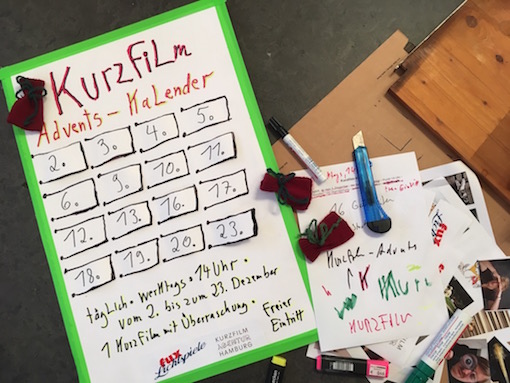 KurzFiLm
Advents-KaLender
2. 3. 4. 5.
6. 9. 10. 11.
12. 13. 16. 17.
18. 19. 20. 23.
täglich · werktags · 14 Uhr ·
vom 2. bis zum 23. Dezember
1 KurzFilm mit Überraschung ·
Freier
Eintritt
fux
Lichtspiele
KURZFILM
AGENTUR
HAMBURG
Eintritt
16
Kurzfilm-Advents
K
Kurz
KURZFILM
fux